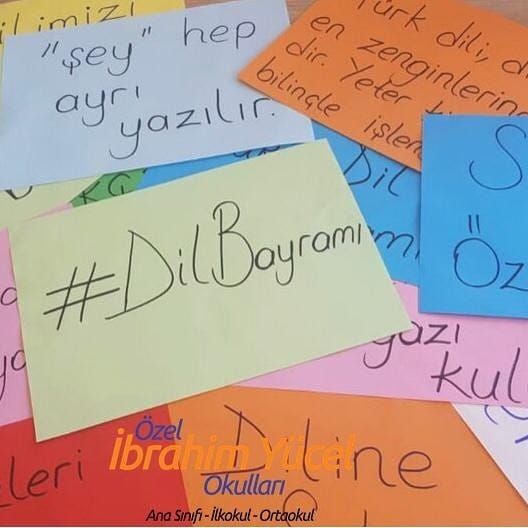 "şey" hep
ayrı
yazılır.
Türk dili,
en zenginlerin
dir. Yeter
bilinçle
Dil
#DilBayramı
Öz
yazı
kul
leri
Diline
Özel
İbrahim Yücel
Okulları
Ana Sınıfı - İlkokul - Ortaokul